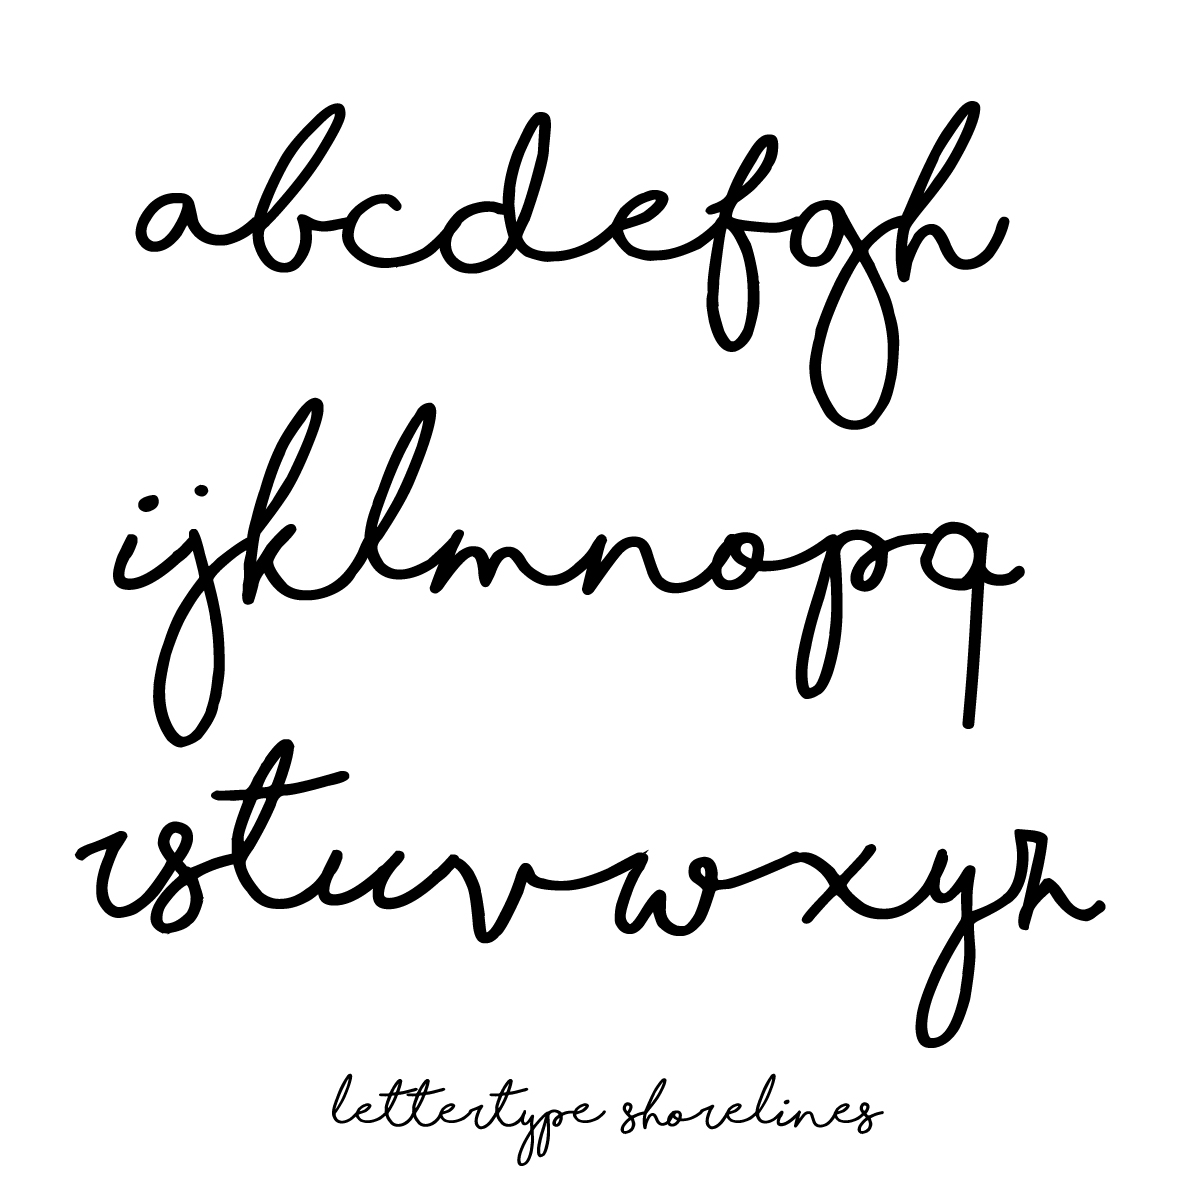 abcdefgh
ijklmnopq
rstuvwxyz
lettertype shorelines